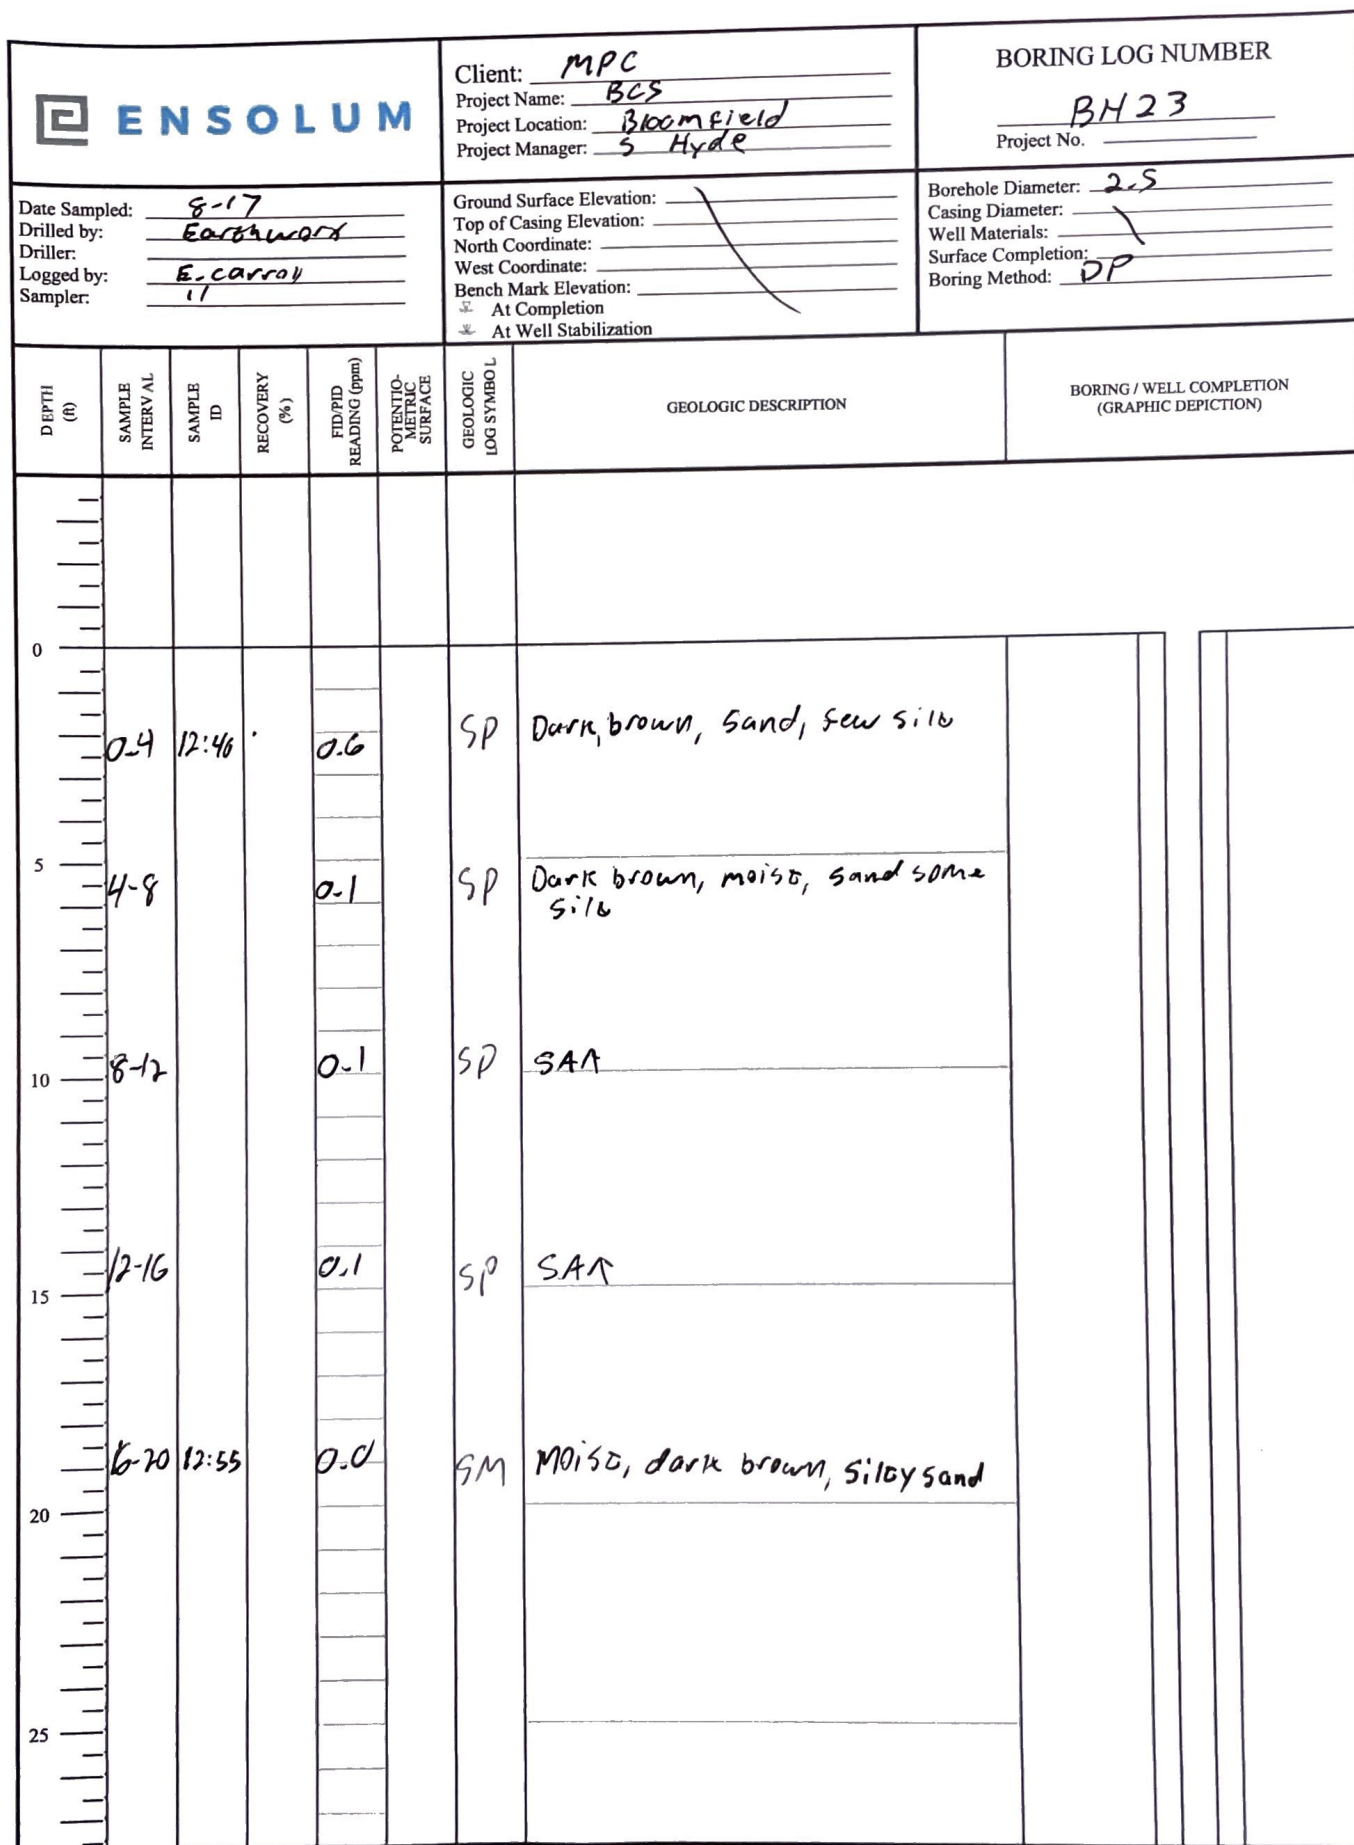 ENSOLUM
Client: MPC
Project Name: BCS
Project Location: Bloomfield
Project Manager: S Hyde
BORING LOG NUMBER
BH23
Project No.
Date Sampled: 8-17
Drilled by: Earthworx
Driller:
Logged by: E. Carroll
Sampler: 11
Ground Surface Elevation:
Top of Casing Elevation:
North Coordinate:
West Coordinate:
Bench Mark Elevation:
At Completion
At Well Stabilization
Borehole Diameter: 2.5
Casing Diameter:
Well Materials:
Surface Completion:
Boring Method: DP
DEPTH
(ft)
SAMPLE
INTERVAL
SAMPLE
ID
RECOVERY
(%)
FID/PID
READING (ppm)
POTENTIO-
METRIC
SURFACE
GEOLOGIC
LOG SYMBOL
GEOLOGIC DESCRIPTION
BORING / WELL COMPLETION
(GRAPHIC DEPICTION)
0
0-4 12:46 0.6 SP Dark, brown, sand, few silt
5
4-8 0.1 SP Dark brown, moist, sand some
silt
8-12 0.1 SP SA↑
10
12-16 0.1 SP SA↑
15
16-20 12:55 0.0 SM Moist, dark brown, silty sand
20
25